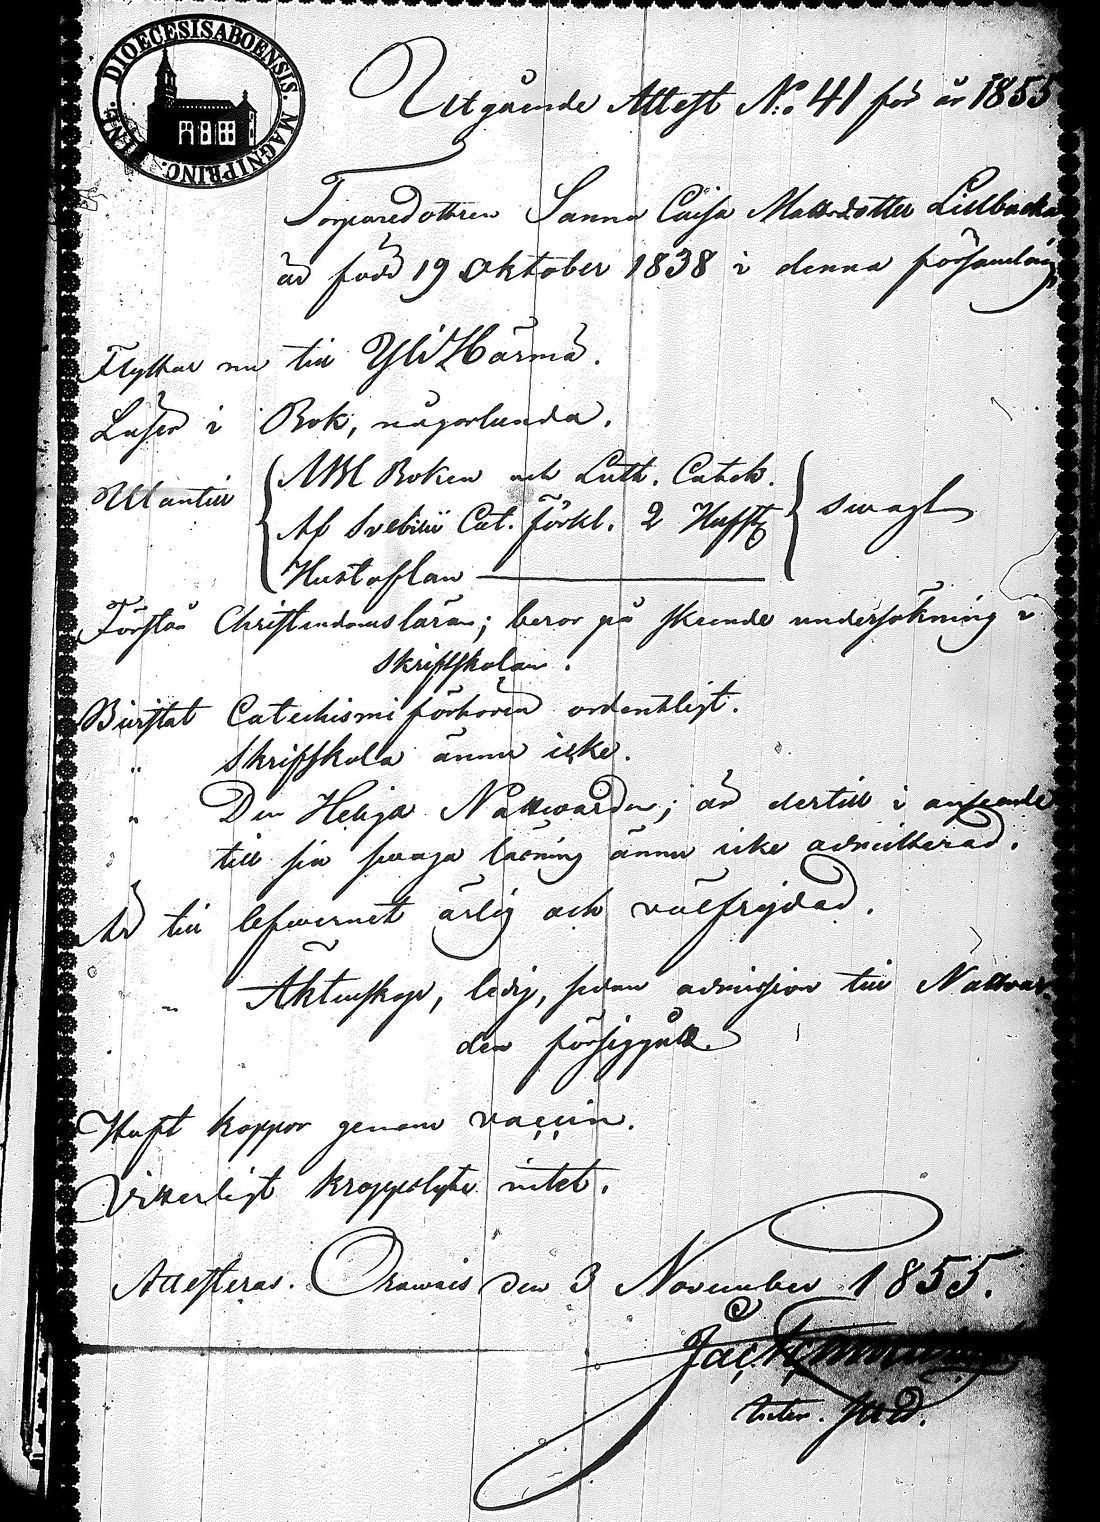 DIOECESIS ABOENSIS. MAGNI PRINC. FINL.
Utgående Attest No: 41 för år 1855
Torparedottren Sanna Caisa Mattsdotter Lillbacka
är född 19 Oktober 1838 i denna församling
Flyttar nu till Yli Härmä.
Läser i Bok, någorlunda.
Utantill ABC Boken och Luth. Catech.
Af Svebilii Cat. Förkl. 2 Hufft svagt
Hustaflan
Förstår Christendomsläran; beror på skeende undersökning i
Skriftskolan.
Bivistat Catechismi förhören ordentligt.
" Skriftskola ännu icke.
" Den Heliga Nattwarden; är dertill i anseende
till sin swaga läsning ännu icke admitterad.
Är till lefwernet ärlig och välfrejdad.
" Äktenskap, ledig, sedan admission till Nattvar-
den försiggått.
Haft koppor genom vaccin.
Vitterligt kroppslyte intet.
Attesteras. Orawais den 3 November 1855.